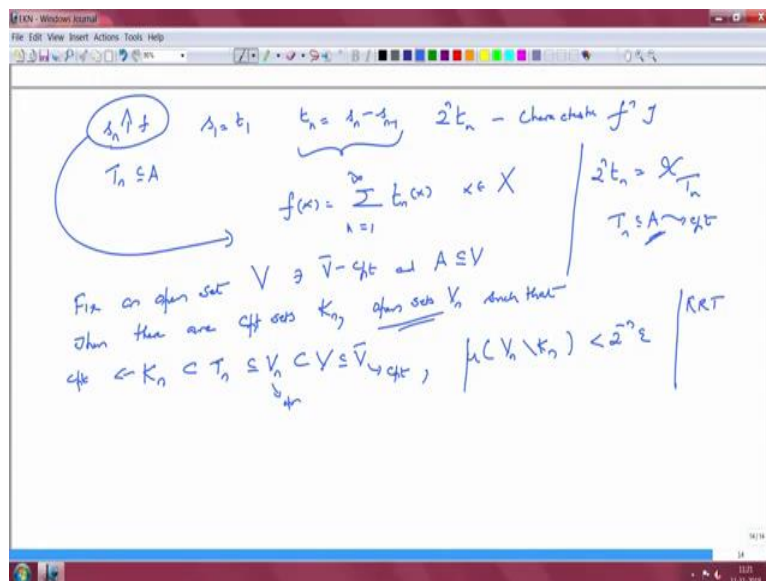 EKN - Windows Journal
File Edit View Insert Actions Tools Help
90%
s_n ↑ f s_1 = t_1 t_n = s_n - s_{n-1} 2^n t_n - f^n
T_n ⊆ A
f(x) = ∑_{n=1}^{∞} t_n(x) x ∈ X
2^n t_n = χ_{T_n}
T_n ⊆ A → cpt
Fix an open set V ∋ V̄ - cpt and A ⊆ V
Then there are cpt sets K_n, open sets V_n such that
cpt ← K_n ⊂ T_n ⊆ V_n ⊂ V ⊆ V̄ → cpt , μ(V_n \ K_n) < 2^{-n} ε
RRT
14/14
14
11:21